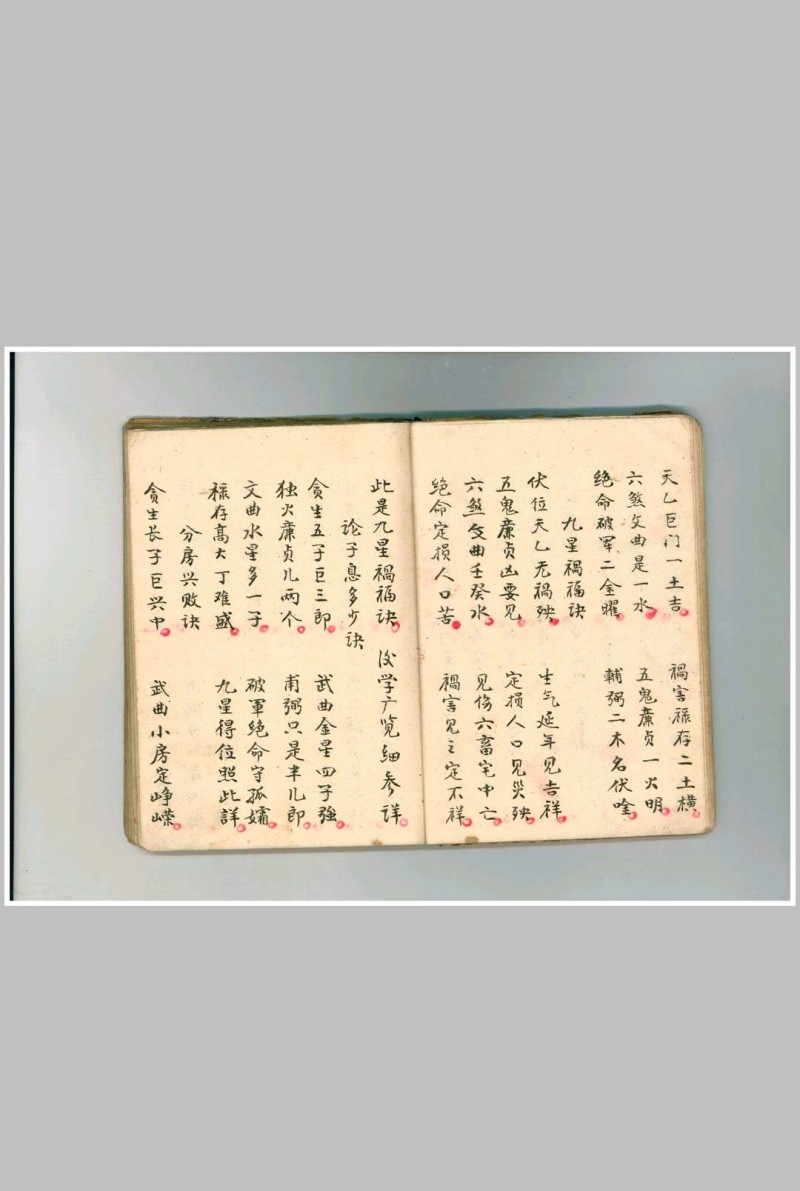 天乙巨门一土吉 祸害禄存二土横
六煞文曲是一水 五鬼廉贞一火明
绝命破军二金曜 輔弼二木名伏唫
九星祸福诀
伏位天乙无祸殃 生气延年见吉祥
五鬼廉贞凶要见 定损人口见灾殃
六煞文曲壬癸水 见伤六畜宅中亡
绝命定损人口苦 祸害见之定不祥
此是九星祸福诀 后学广览细参详
论子息多少诀
贪生五子巨三郎 武曲金星四子強
独火廉贞儿两个 甫弼只是半儿郎
文曲水星多一子 破軍绝命守孤孀
禄存高大丁难盛 九星得位照此詳
分房兴败诀
贪生长子巨兴中 武曲小房定峥嵘